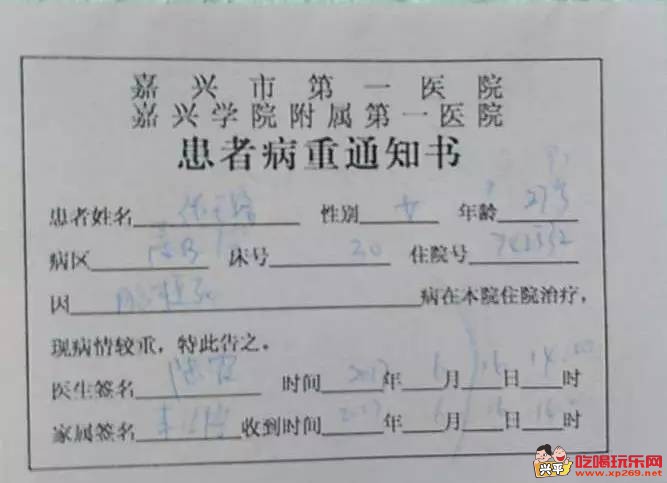 嘉兴市第一医院
嘉兴学院附属第一医院
患者病重通知书
患者姓名 性别 女 年龄 27岁
病区 床号 20 住院号
因 病在本院住院治疗，
现病情较重，特此告之。
医生签名 时间 2017 年 6 月 16 日 14 时
家属签名 收到时间 2017 年 6 月 16 日 时
兴平 吃喝玩乐网
www.xp269.net